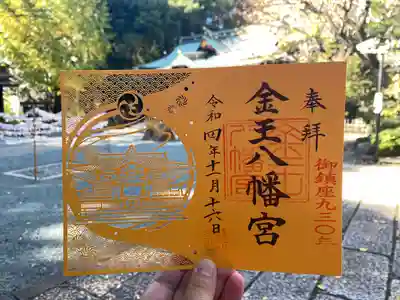 奉拝
御鎮座九三〇年
金王八幡宮
令和四年十一月十六日